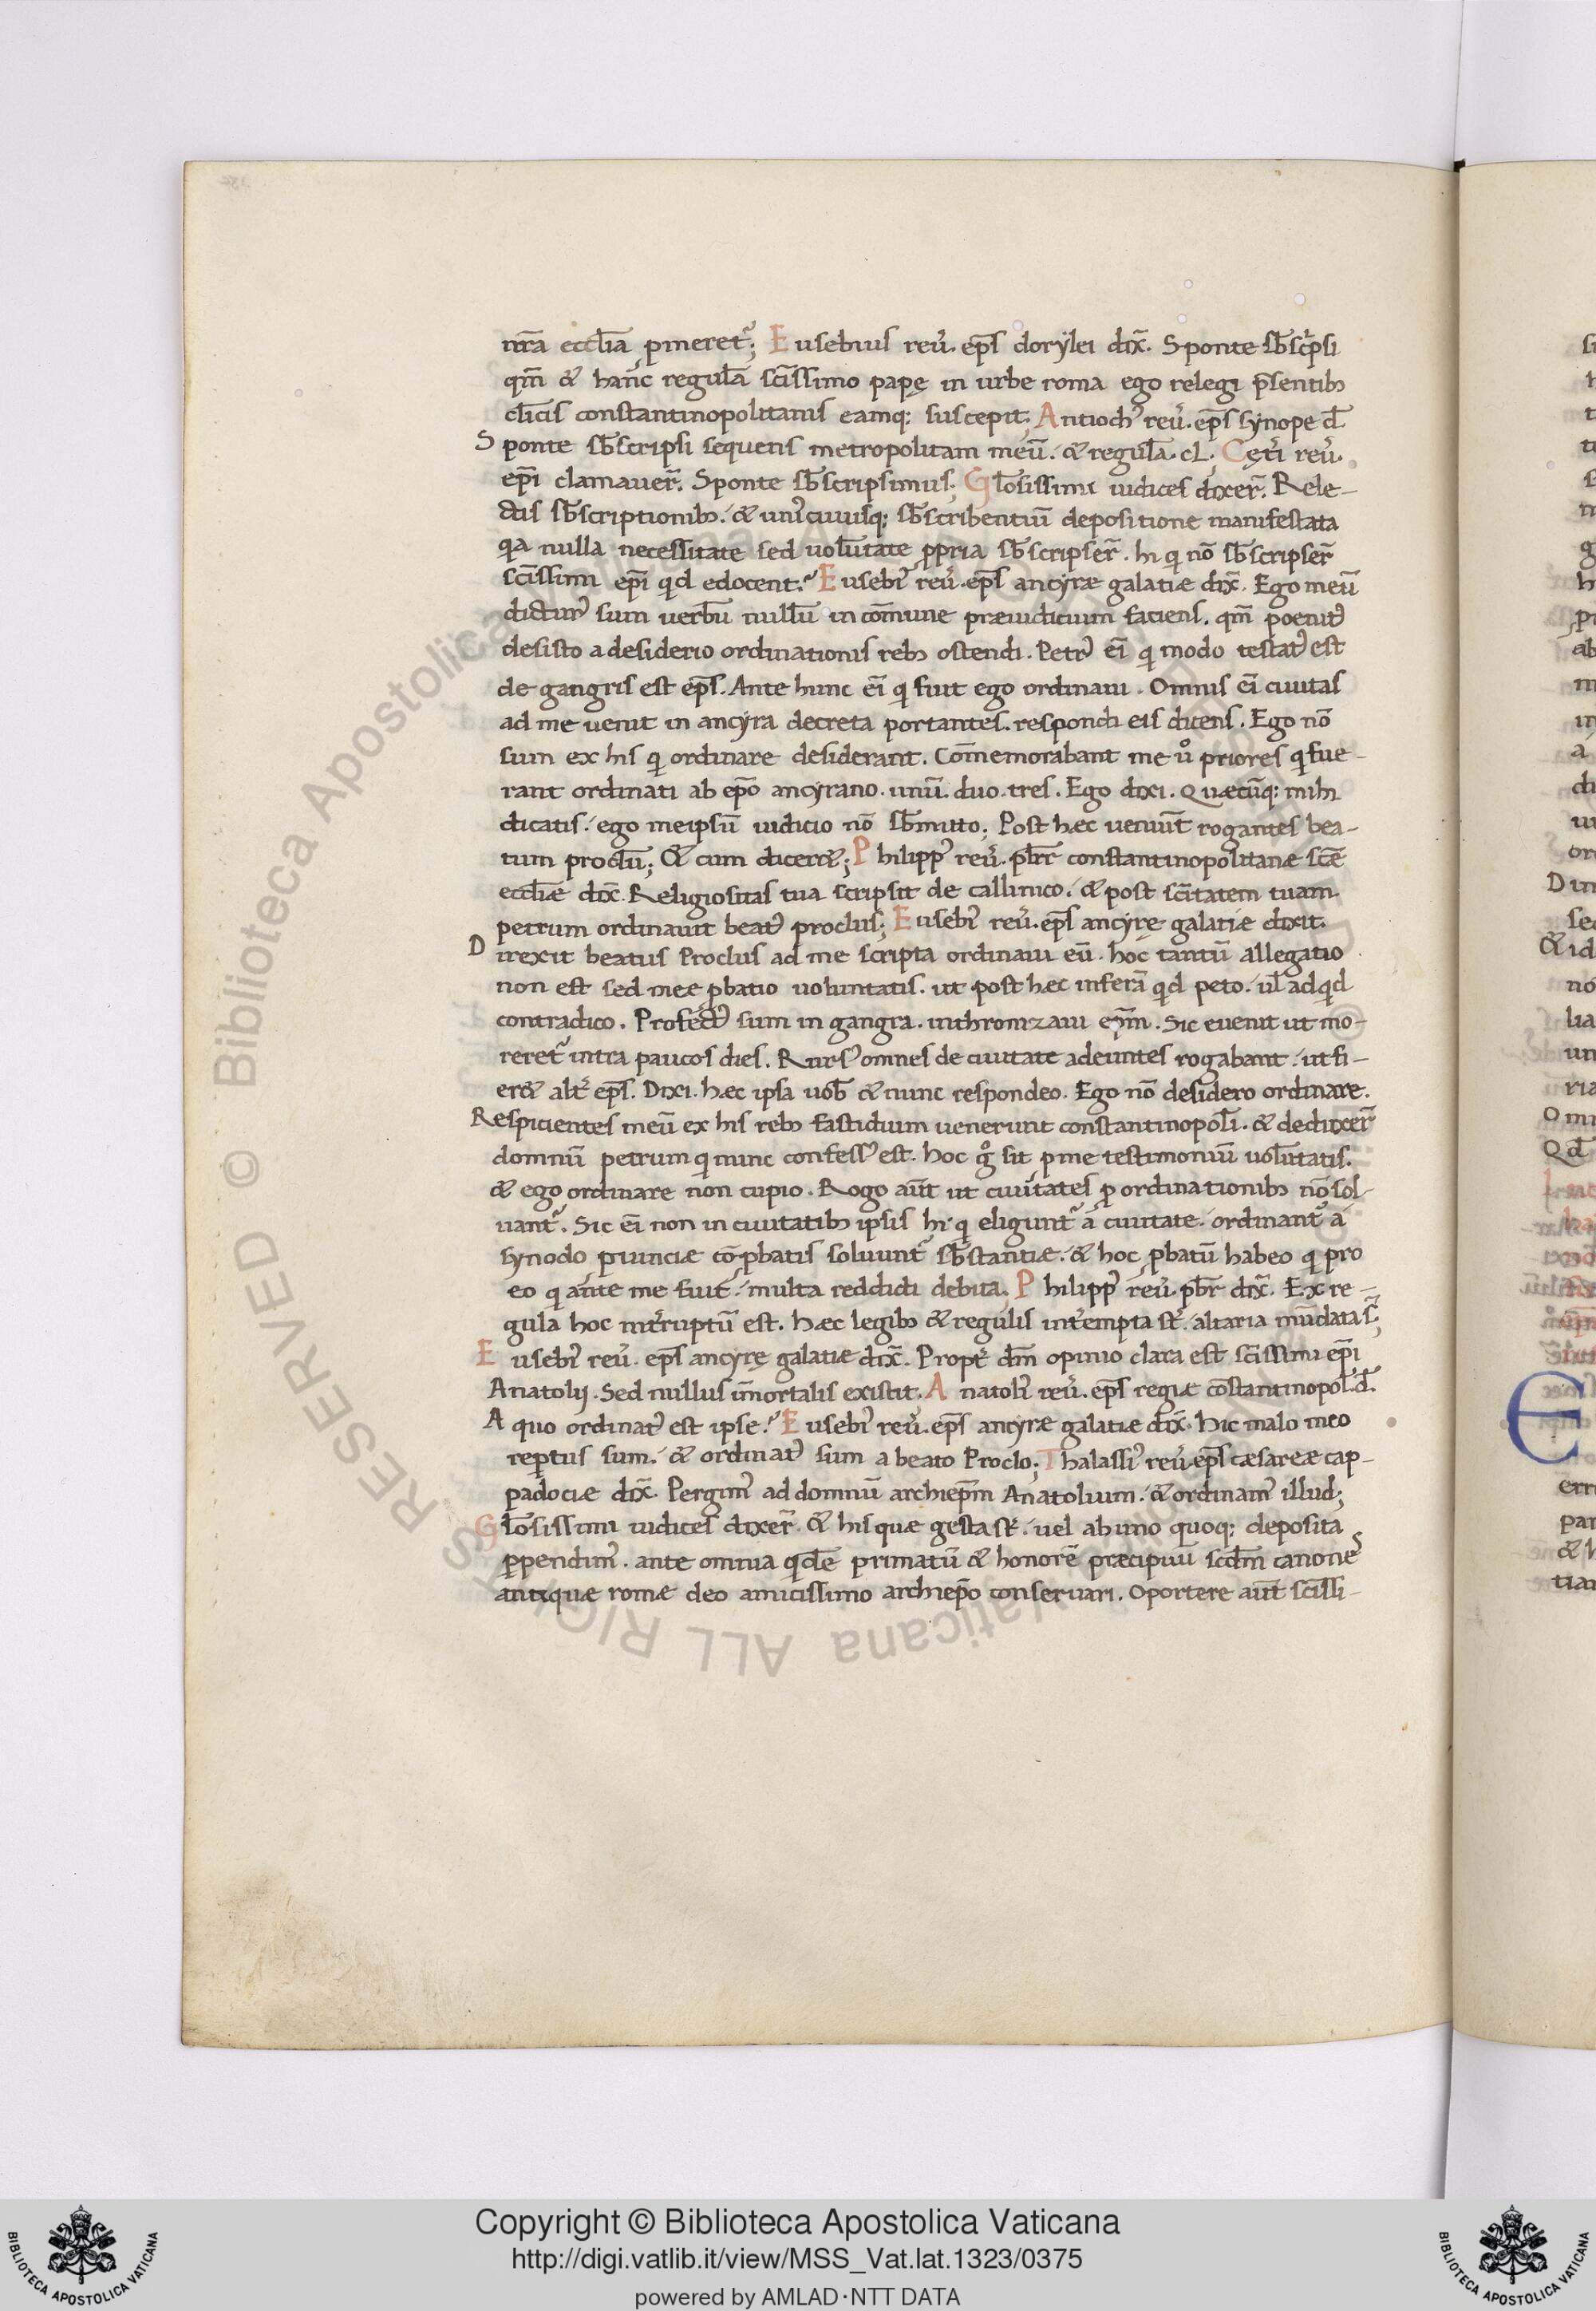 nr̃a eccl̃ia ꝑmeret᷑; Eusebius reu᷒. ep̃s dorÿlei dix̃. Sponte sb̃scꝑsi
qm̃ & hanc regulã scĩssimo papę in urbe roma ego relegi p̃sentib;
cl̃icis constantinopolitanis eamq; suscepit. Antioch᷒ reu᷒. ep̃s synope d̃.
Sponte sb̃scripsi sequens metropolitam meũ. & regul̃a. cL. Cęt᷒i reu᷒.
ep̃i clamauer̃. Sponte sb̃scripsimus; Gl̃osissimi iudices dixer̃. Rele-
ctis sb̃scriptionib; & uni᷒cuiusq; sb̃scribentiũ depositione manifestata
qa nulla necessitate sed uolũtate ꝓpria sb̃scripser̃. hi qi nõ sb̃scripser̃
scĩssimi ep̃i qd edocent.? Eusebi᷒ reu᷒. ep̃s ancyræ galatiæ dix̃. Ego meũ
dictur᷒ sum uerbũ nullũ in cõmune præiudicium faciens. qm̃ poenit᷒
desisto a desiderio ordinationis reb; ostendi. Petr᷒ ei̅ qi modo testat᷒ est
de gangris est ep̃s. Ante hunc ei̅ qi fuit ego ordinaui. Omnis ei̅ ciuitas
ad me uenit in ancyra decreta portantes. respondi eis dicens. Ego nõ
sum ex his qi ordinare desiderant. Cõmemorabant me u᷒o priores qi fue-
rant ordinati ab ep̃o ancyrano. unũ. duo. tres. Ego dixi. Quæcũq; mihi
dicatis. ego meipsũ iudicio nõ sb̃mitto; Post hæc ueniũt rogantes bea-
tum proclũ; & cum dicer&; Philipp᷒ reu᷒. pb̃r constantinopolitanæ scæ̃
eccl̃iæ dix̃. Religiositas tua scripsit de callinico. & post scĩtatem tuam
petrum ordinauit beat᷒ proclus; Eusebi᷒ reu᷒. ep̃s ancyrę galatiæ dixit.
Direxit beatus Proclus ad me scripta ordinaui eũ. hoc tantũ allegatio
non est sed meę ꝓbatio uoluntatis. ut post hæc inferã qd peto. ul̃ ad qid
contradico. Profect᷒ sum in gangra. inthronizaui eũm. Sic euenit ut mo-
reret᷑ intra paucos dies. Rurs᷒ omnes de ciuitate adeuntes rogabant. ut fi-
er& alt᷒ ep̃s. Dixi. hæc ipsa uob̃ & nunc respondeo. Ego nõ desidero ordinare.
Respicientes meũ ex his reb; fastidium uenerunt constantinopol̃i. & deduxer̃
domnũ petrum qi nunc confess᷒ est. hoc g᷒o sit ꝑ me testimoniũ uolũtatis.
& ego ordinare non cupio. Rogo aũt ut ciuitates ꝓ ordinationib; nõ sol-
uant᷑. Sic ei̅ non in ciuitatib; ipsis hi qi eligunt᷑ á ciuitate. ordinant᷑ á
synodo ꝓuinciæ cõꝓbatis soluunt᷑ sb̃stantiæ. & hoc ꝓbatũ habeo qi pro
eo qi ante me fuit. multa reddidi debita. Philipp᷒ reu᷒. pb̃r dix̃. Ex re-
gula hoc int᷒ruptũ est. hæc legib; & regulis int᷒empta st̃. altaria mũdata s̃t;
Eusebi᷒ reu᷒. ep̃s ancyrę galatiæ dix̃. Propt᷒ dm̃ opinio clara est scĩssimi ep̃i
Anatolij. Sed nullus im̃ortalis existit. Anatoli᷒ reu᷒. ep̃s regiæ cõstantinopol̃. d̃.
A quo ordinat᷒ est ipse? Eusebi᷒ reu᷒. ep̃s ancyræ galatiæ dix̃. hic malo meo
reptus sum. & ordinat᷒ sum a beato Proclo; Thalassi᷒ reu᷒. ep̃s cæsareæ cap-
padociæ dix̃. Pergim᷒ ad domnũ archiep̃m Anatolium. & ordinam᷒ illud;
Gl̃osissimi iudices dixer̃. & his quæ gesta st̃. uel ab uno quoq; deposita
ꝑpendim᷒. ante omnia qidẽ primatũ & honorẽ præcipuũ scd̃m canone᷒
antiquæ romæ deo amicissimo archiep̃o conseruari. Oportere aũt scĩssi-
Copyright © Biblioteca Apostolica Vaticana
http://digi.vatlib.it/view/MSS_Vat.lat.1323/0375
powered by AMLAD·NTT DATA